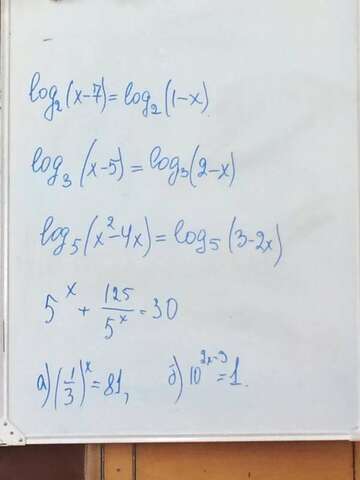 log₂(x-7)=log₂(1-x)
log₃(x-5)=log₃(2-x)
log₅(x²-4x)=log₅(3-2x)
5ˣ+125/5ˣ=30
а)(1/3)ˣ=81, б)10²ˣ⁻³=1.